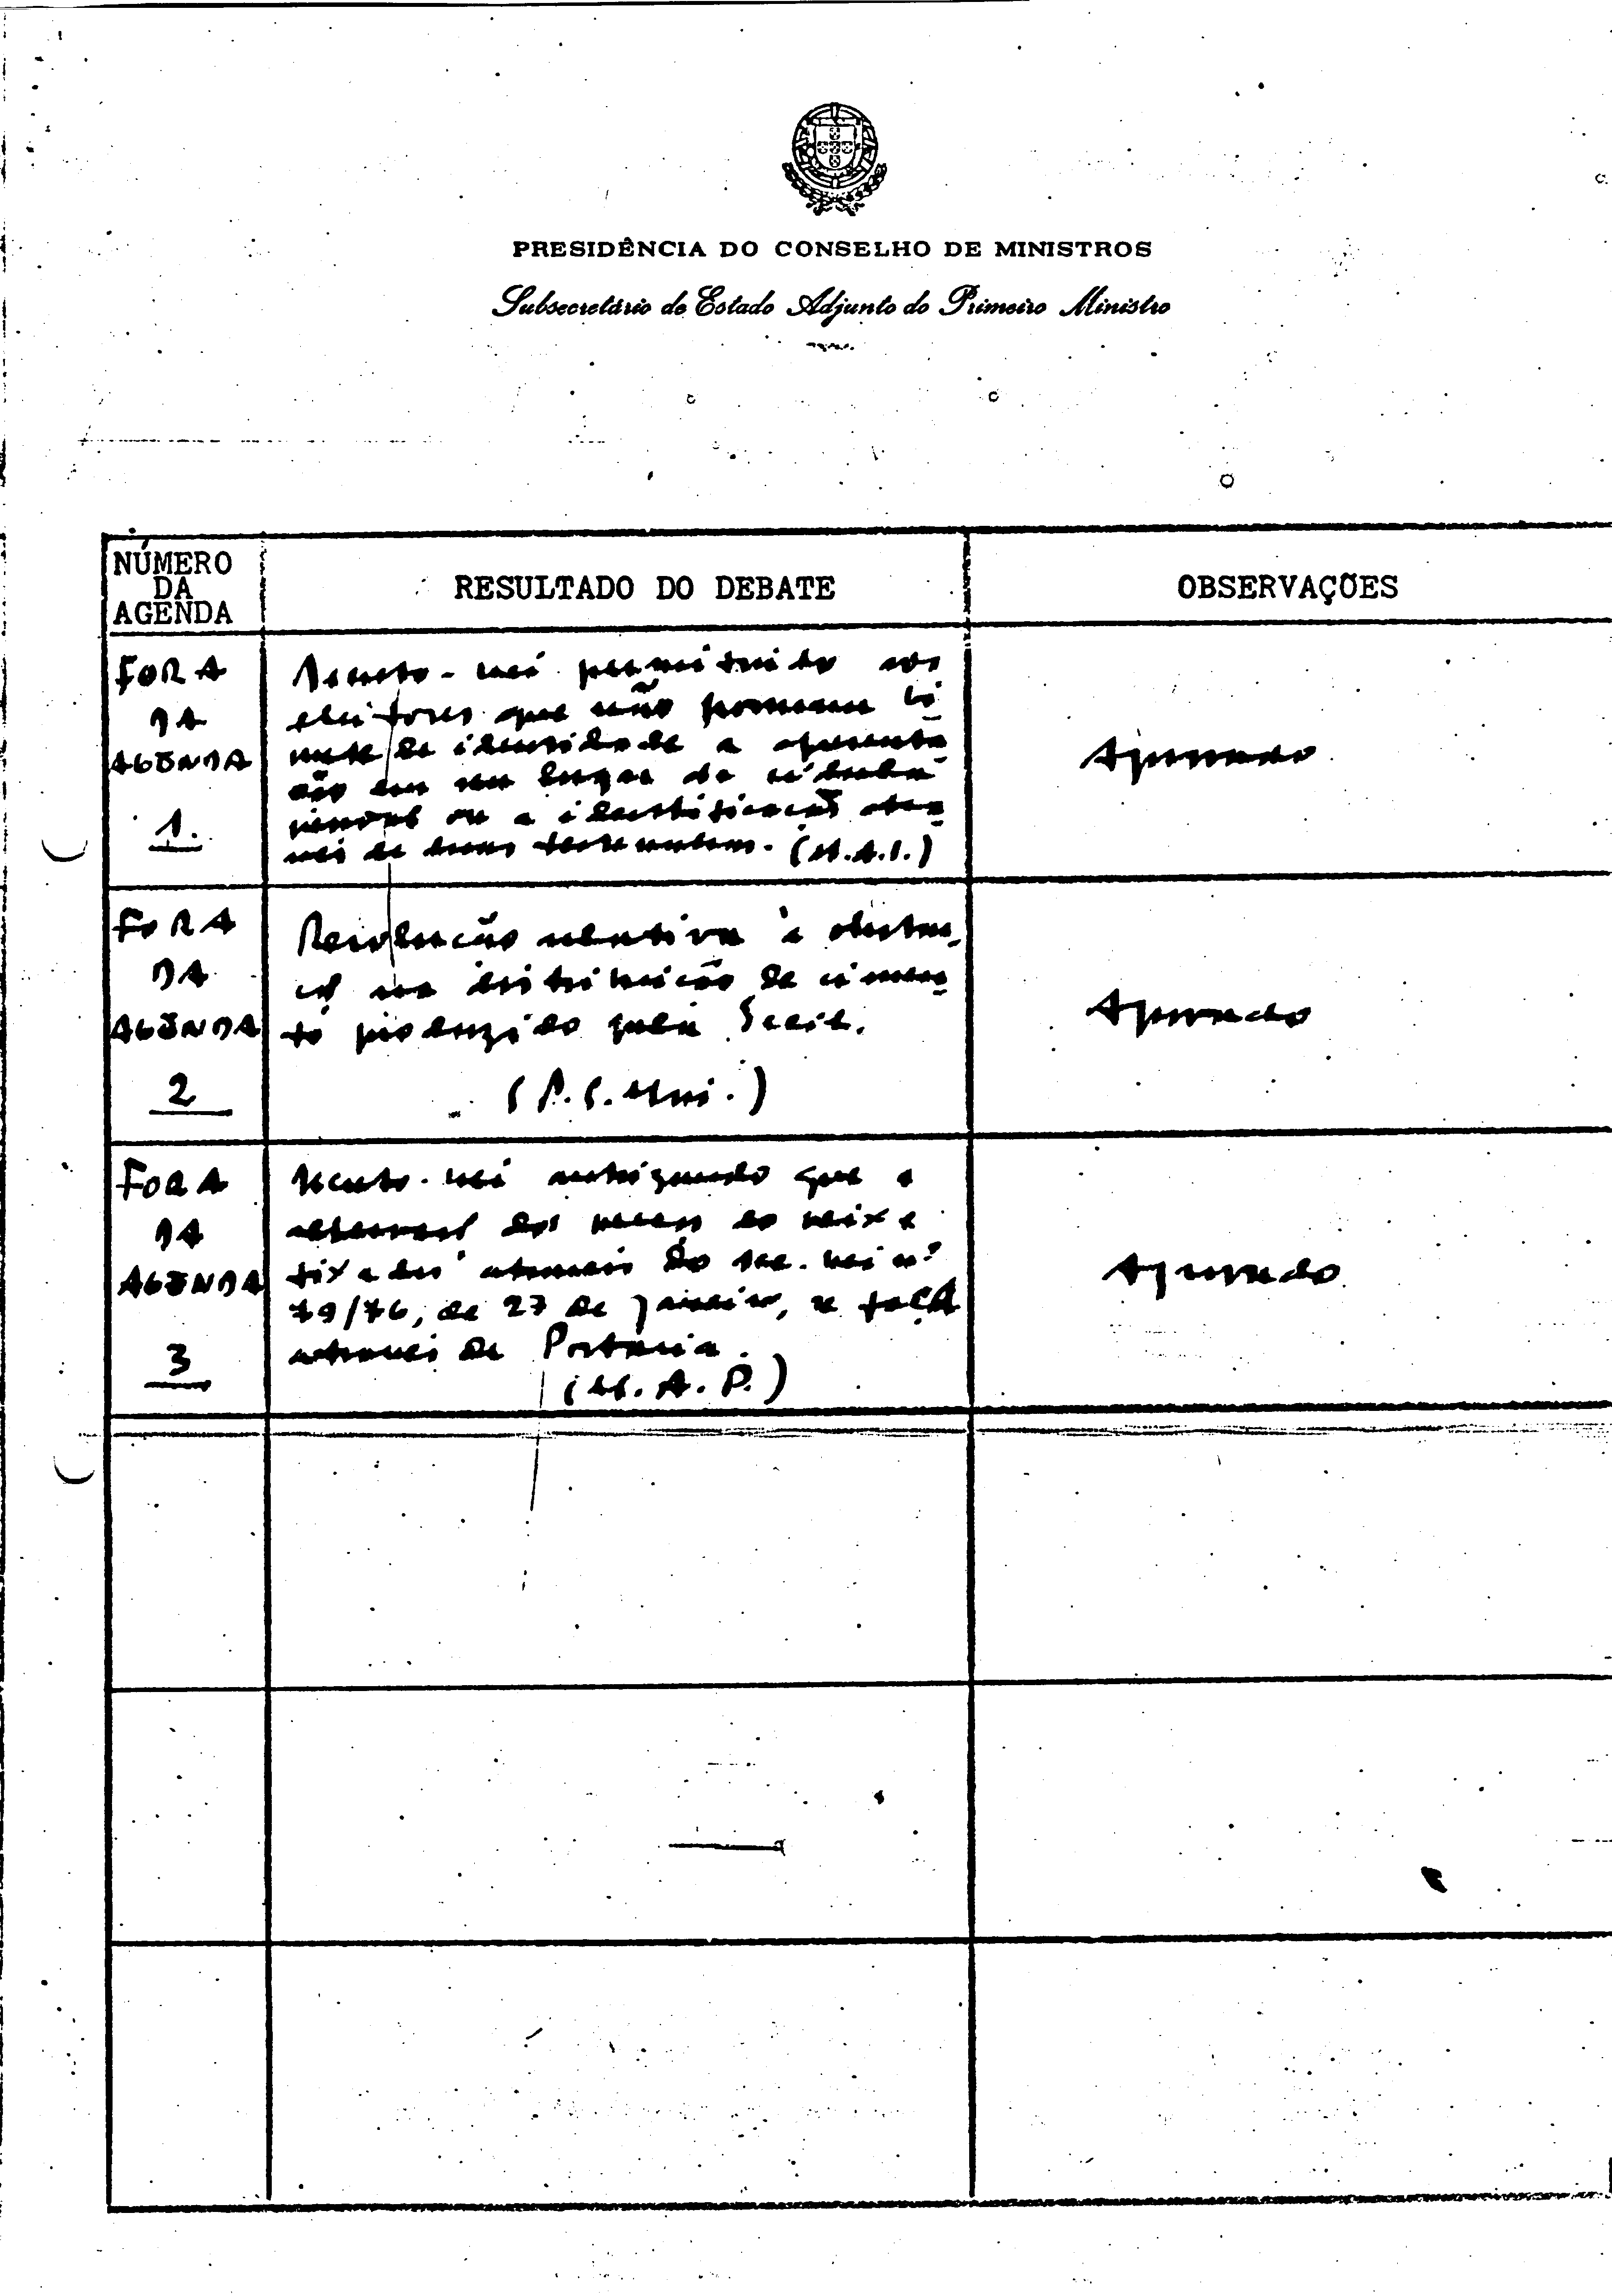 PRESIDÊNCIA DO CONSELHO DE MINISTROS
Subsecretário de Estado Adjunto do Primeiro Ministro
NÚMERO
DA
AGENDA
RESULTADO DO DEBATE
OBSERVAÇÕES
FORA
DA
AGENDA
1.
Decreto-Lei permitindo aos
eleitores que não possuam bi
lhete de identidade a apresenta
ção em seu lugar da cédula
pessoal ou a identificação atra
vés de duas testemunhas. (M.A.I.)
Aprovado
FORA
DA
AGENDA
2
Resolução relativa à
na distribuição de cimen
to produzido pela Secil.
Aprovado
FORA
DA
AGENDA
3
Decreto-Lei autorizando que a
dos preços do peixe
fixados através do Dec. Lei nº
79/76, de 27 de Janeiro, se faça
através de Portaria.
(M.A.P.)
Aprovado